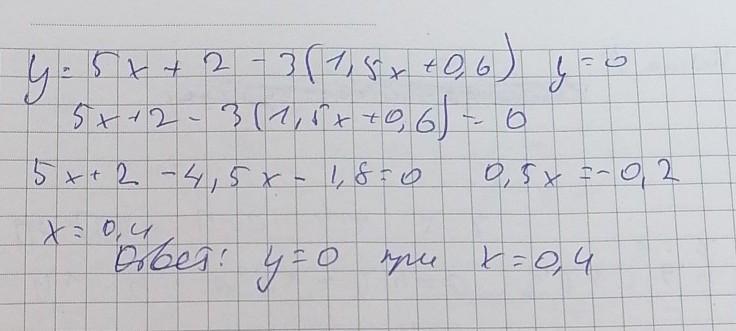 y = 5x + 2 - 3(1,5x + 0,6) y = 0
5x + 2 - 3(1,5x + 0,6) = 0
5x + 2 - 4,5x - 1,8 = 0 0,5x = -0,2
x = 0,4
Ответ: y = 0 при x = 0,4